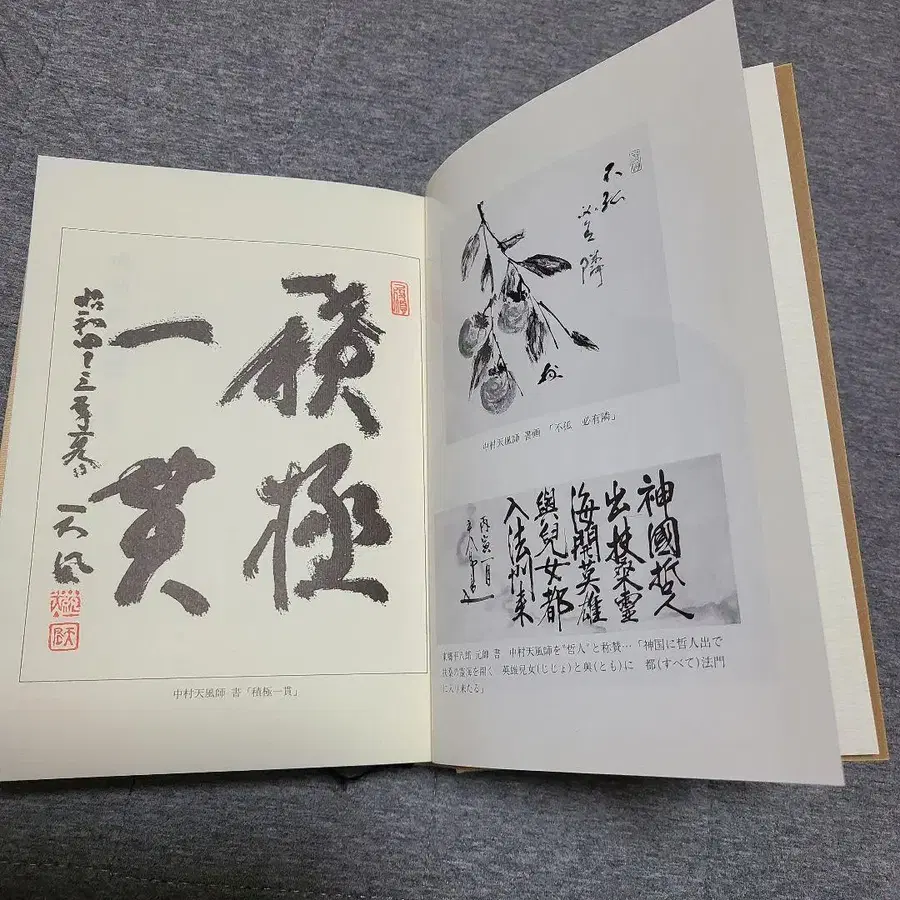 積極
一貫
昭和四十三年春
天風
中村天風師 書「積極一貫」
不孤
必有隣
中村天風師 書画 「不孤 必有隣」
神國哲人
出扶桑靈
海開英雄
與兒女都
入法門来
丙寅一月
東郷平八郎 元帥 書 中村天風師を"哲人"と称賛…「神国に哲人出で
扶桑の霊海を開く 英雄兒女(じじょ)と與(とも)に 都(すべて)法門
に入り来たる」